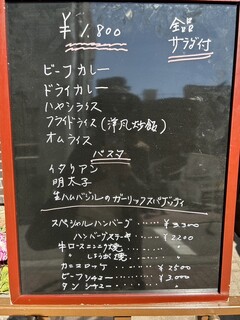 ¥1,800
全品
サラダ付
ビーフカレー
ドライカレー
ハヤシライス
フライドライス(洋風炒飯)
オムライス
パスタ
イタリアン
明太子
生ハムバジルのガーリックスパゲッティ
スペシャルハンバーグ ‥‥‥ ¥3,300
ハンバーグステーキ ‥‥‥ ¥2200
牛ロースニンニク焼 ‥‥‥ 〃
〃 しょうが焼 ‥‥‥ 〃
カニコロッケ ‥‥‥ ¥2500
ビーフシチュー ‥‥‥ ¥3,000
タンシチュー ‥‥‥ 〃